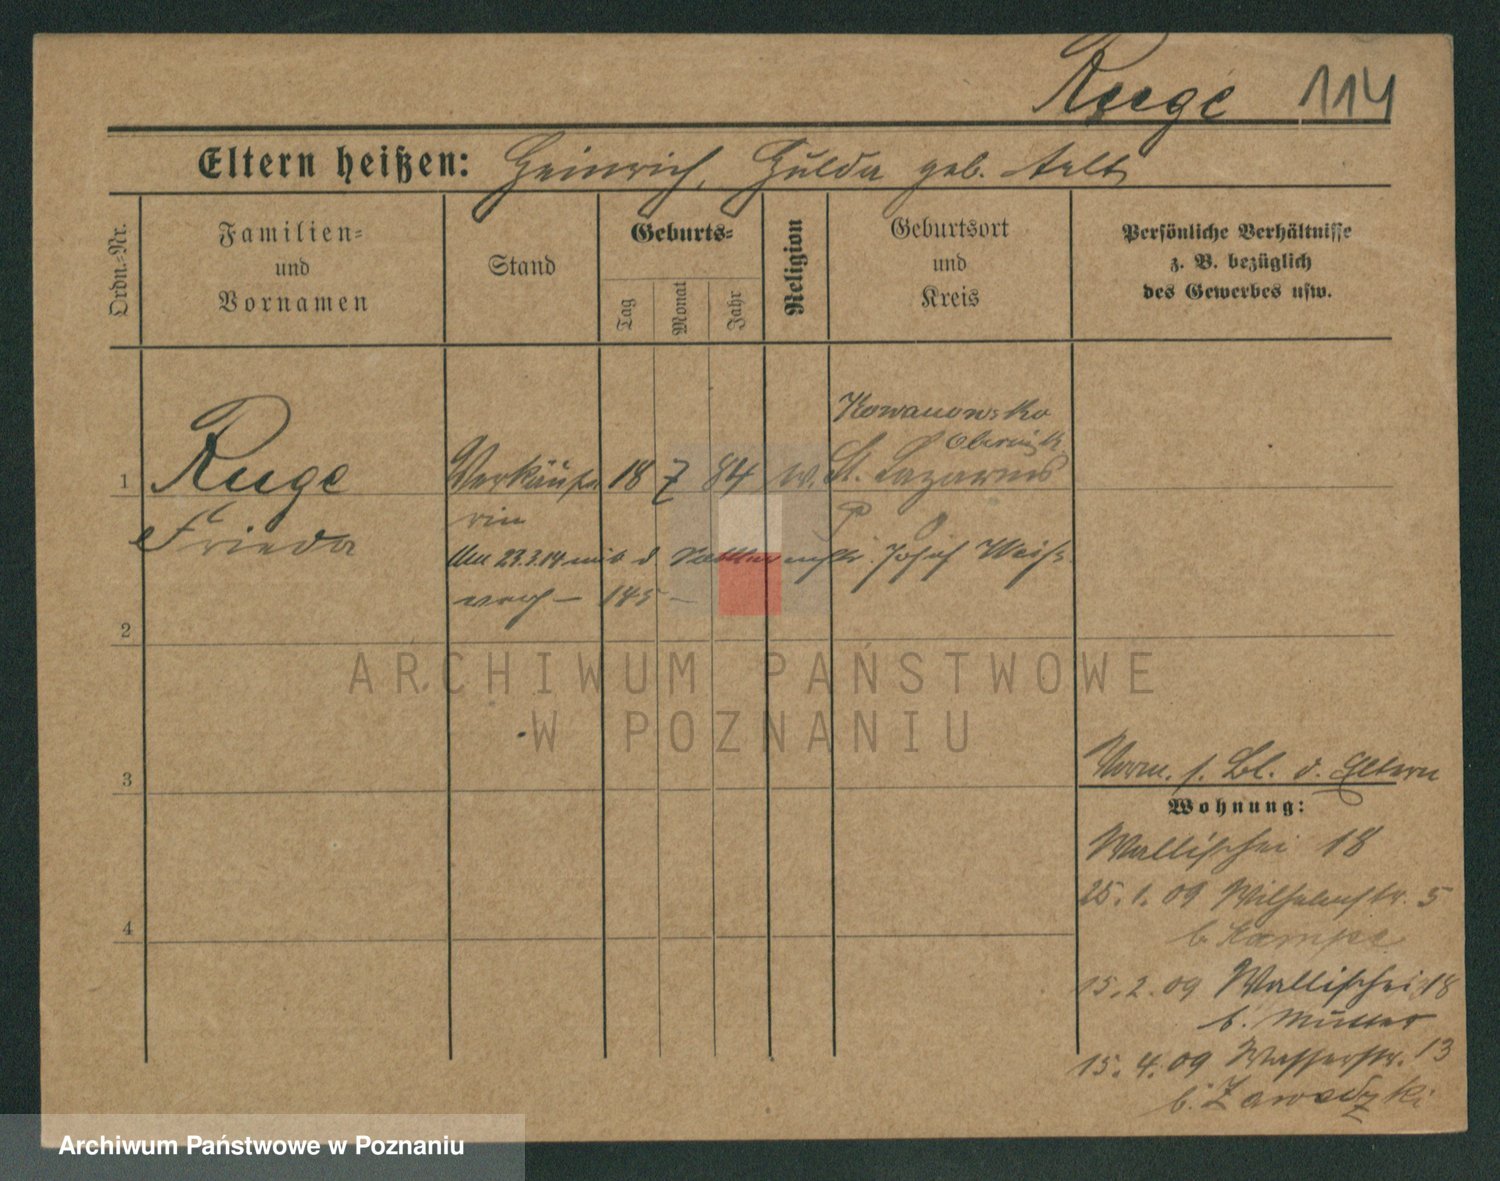 Ruge 114
Eltern heißen: Heinrich, Hulda geb. Aelt
Ordn.=Nr.
Familien=
und
Vornamen
Stand
Geburts=
Tag
Monat
Jahr
Religion
Geburtsort
und
Kreis
Persönliche Verhältnisse
z. B. bezüglich
des Gewerbes usw.
Kowanowsko
Obernik
1 Ruge Verkäufe 18 7 84 St. Lazarus
Frieda rin
23.3.14 mit d. Josef
145 —
2
ARCHIWUM PAŃSTWOWE
W POZNANIU
3
Vorm. s. Bl. d. Eltern
Wohnung:
Wallischei 18
25. 1. 09 Wilhelmstr. 5
b. Kampe
15. 2. 09 Wallischei 18
b. Mutter
4
15. 4. 09 Wasserstr. 13
b. Zawadzki
Archiwum Państwowe w Poznaniu